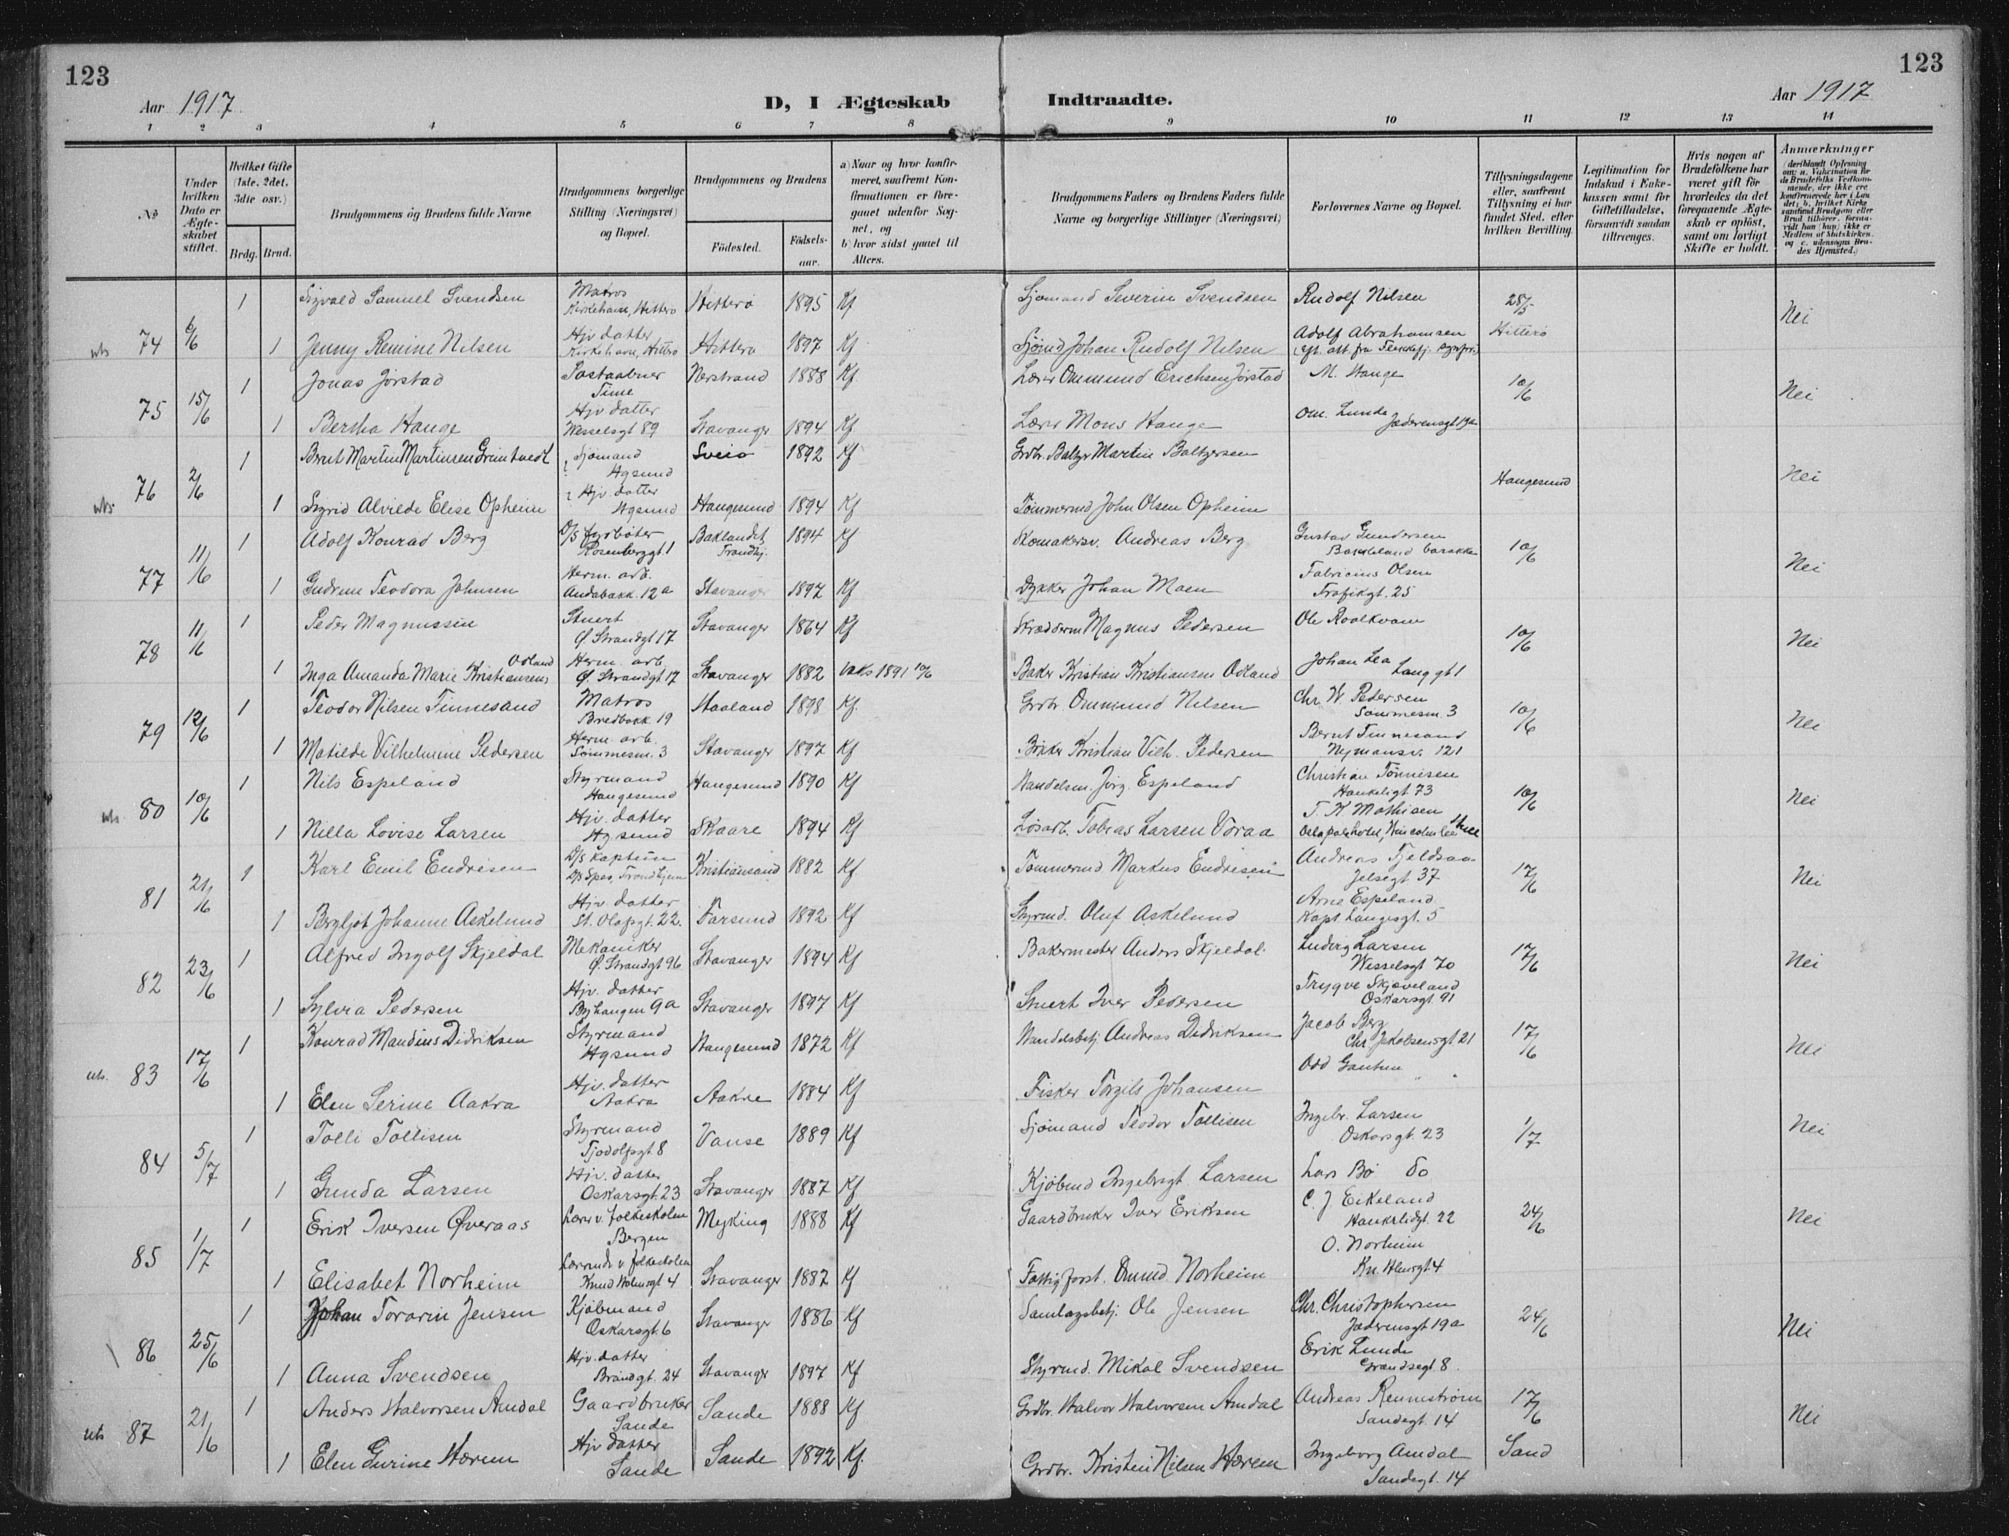 123
Aar 1917.
D, I Ægteskab Indtraadte.
Aar 1917
123
1 2 3 4 5 6 7 8 9 10 11 12 13 14
No
Under hvilken Dato er Ægteskabet stiftet.
Hvilket Gifte (1ste, 2det, 3die osv.)
Brdg. Brud.
Brudgommens og Brudens fulde Navne
Brudgommens borgerlige Stilling (Næringsvei) og Bopæl.
Brudgommens og Brudens
Fødested. Fødselsaar.
a) Naar og hvor konfirmeret, saafremt Konfirmationen er foregaaet udenfor Sognet, og
b) hvor sidst gaaet til Alters.
Brudgommens Faders og Brudens Faders fulde Navne og borgerlige Stillinger (Næringsvei)
Forlovernes Navne og Bopæl.
Tillysningsdagene eller, saafremt Tillysning ei har fundet Sted, efter hvilken Bevilling.
Legitimation for Indskud i Enkekassen samt for Giftetilladelse, forsaavidt saadan tiltrænges.
Hvis nogen af Brudefolkene har været gift før hvorledes da det foregaaende Ægteskab er opløst, samt om lovligt Skifte er holdt.
Anmærkninger
74 6/6 1 Sigvald Samuel Svendsen Matros Kirkehavn, Hitterø Hitterø 1895 Kf Sjømand Severin Svendsen Rudolf Nilsen 28/5 Nei
1 Jenny Remine Nilsen Hjv datter Kirkehavn, Hitterø Hitterø 1897 Kf Sjømd Johan Rudolf Nilsen Adolf Abrahamsen Hitterø
75 15/6 1 Jonas Jørstad Time Nerstrand 1888 Kf Lærer Ommund Erichsen Jørstad M. Hauge 10/6 Nei
1 Bertha Hauge Hjv datter Wesselsgt 89 Stavanger 1894 Kf Lærer Mons Hauge Om. Lunde Jæderensgt 19a
76 2/6 1 Bernt Martin Martinsen Grimtvedt Sjømand Hgsund Sveio 1892 Kf Grdbr. Baltzer Martin Baltzersen Haugesund Nei
1 Sigrid Alvilde Elise Opheim Hjv datter Hgsund Haugesund 1894 Kf Tømmermd John Olsen Opheim
77 11/6 1 Adolf Konrad Berg D/S fyrbøter Rosenberggt 1 Baklandet Trondhj. 1894 Kf Skomakersv. Andreas Berg Gustav Gundersen barakke 10/6 Nei
1 Gudrun Teodora Johnsen Herm. arb. Andabakk. 12a Stavanger 1897 Kf Dykker Johan Moen Fabricius Olsen Trafikgt. 25
78 11/6 1 Peder Magnussen Stuert Ø Strandgt 17 Stavanger 1864 Kf Skrædderm Magnus Pedersen Ole Roalkvam 10/6 Nei
1 Inga Amanda Marie Kristiansen Odland Herm. arb. Ø. Strandgt 17 Stavanger 1882 Vaks 1891 10/6 Baker Kristian Kristiansen Odland Johan Lea Langgt 1
79 12/6 1 Teodor Nilsen Tinnesand Matros Bredbakk 19 Haaland 1898 Kf. Grdbr Ommund Nilsen Chr. W. Pedersen Sømmesm. 3 10/6 Nei
1 Matilde Vilhelmine Pedersen Herm. arb. Sømmesm. 3 Stavanger 1897 Kf Bøkker Kristian Vilh. Pedersen Bernt Tinnesand Nymansv. 121
80 10/6 1 Nils Espeland Styrmand Haugesund Haugesund 1890 Kf Handelsm. Jørg. Espeland Christian Tønnesen Haukeligt 73 10/6 Nei
1 Nilla Lovise Larsen Hjv. datter Hgsund Skaare 1894 Kf Løsarb. Tobias Larsen Voraa T. K Mathisen
81 21/6 1 Karl Emil Endresen D/S Kaptein D/S Spes, Trondhjem Kristiansand 1882 Kf Tømmermd Markus Endresen Andreas Fjeldsaa Jelsegt 37 17/6 Nei
1 Bergljot Johanne Askelund Hjv. datter St. Olafsgt. 22. Farsund 1892 Kf Styrmd. Oluf Askelund Arne Espeland Kapt Langesgt. 5
82 23/6 1 Alfred Ingolf Skjeldal Mekaniker Ø. Strandgt 96 Stavanger 1894 Kf Bakermester Anders Skjeldal. Ludvig Larsen Wesselsgt 70 17/6 Nei
1 Sylvia Pedersen Hjv. datter Byhaugen 9a Stavanger 1897 Kf Stuert Iver Pedersen Trygve Skjæveland Oskarsgt. 91
83 17/6 1 Konrad Mandius Didriksen Styrmand Hgsund Haugesund 1872 Kf Handelsbetj Andreas Didriksen Jacob Berg Chr. Jakobsensgt 21 17/6 Nei
1 Elen Serine Aakra Hjv. datter Aakra Aakre 1884 Kf Fisker Torgils Johansen Odd " "
84 5/7 1 Tolli Tollisen Styrmand Tjodolfsgt 8 Vanse 1889 Kf Sjømand Teodor Tollisen Ingebr. Larsen Oskarsgt. 23 1/7 Nei
1 Gunda Larsen Hjv. datter Oskarsgt. 23 Stavanger 1887 Kf Kjøbmd Ingebrigt Larsen Lars Bø do
85 1/7 1 Erik Iversen Øveraas Lærer v. folkeskolen Bergen 1888 Kf Gaardbruker Iver Eriksen C. J. Eikeland Haukeligt. 22 24/6 Nei
1 Elisabet Norheim v folkeskolen Knud Holmsgt 4 Stavanger 1887 Kf Fattigforst. Omund Norheim O. Norheim
86 25/6 1 Johan Torarin Jensen Kjøbmand Oskarsgt. 6 Stavanger 1886 Kf Samlagsbetj. Ole Jensen Chr. Christophersen Jæderensgt 19a 24/6 Nei
1 Anna Svendsen Hjv. datter Brandgt. 24 Stavanger 1897 Kf Styrmd. Mikal Svendsen Erik Lunde 8.
87 21/6 1 Anders Halvorsen Amdal Gaardbruker Sande Sande 1888 Kf Grdbr. Halvor Halvorsen Amdal Andreas Rennestrøm Sandsgt. 14 17/6 Nei
1 Elen Gurine Hærem Hjv datter Sande Sande 1892 Kf. Grdbr. Kristen Nilsen Hærem Ingeborg Amdal Sandsgt. 14 Sand